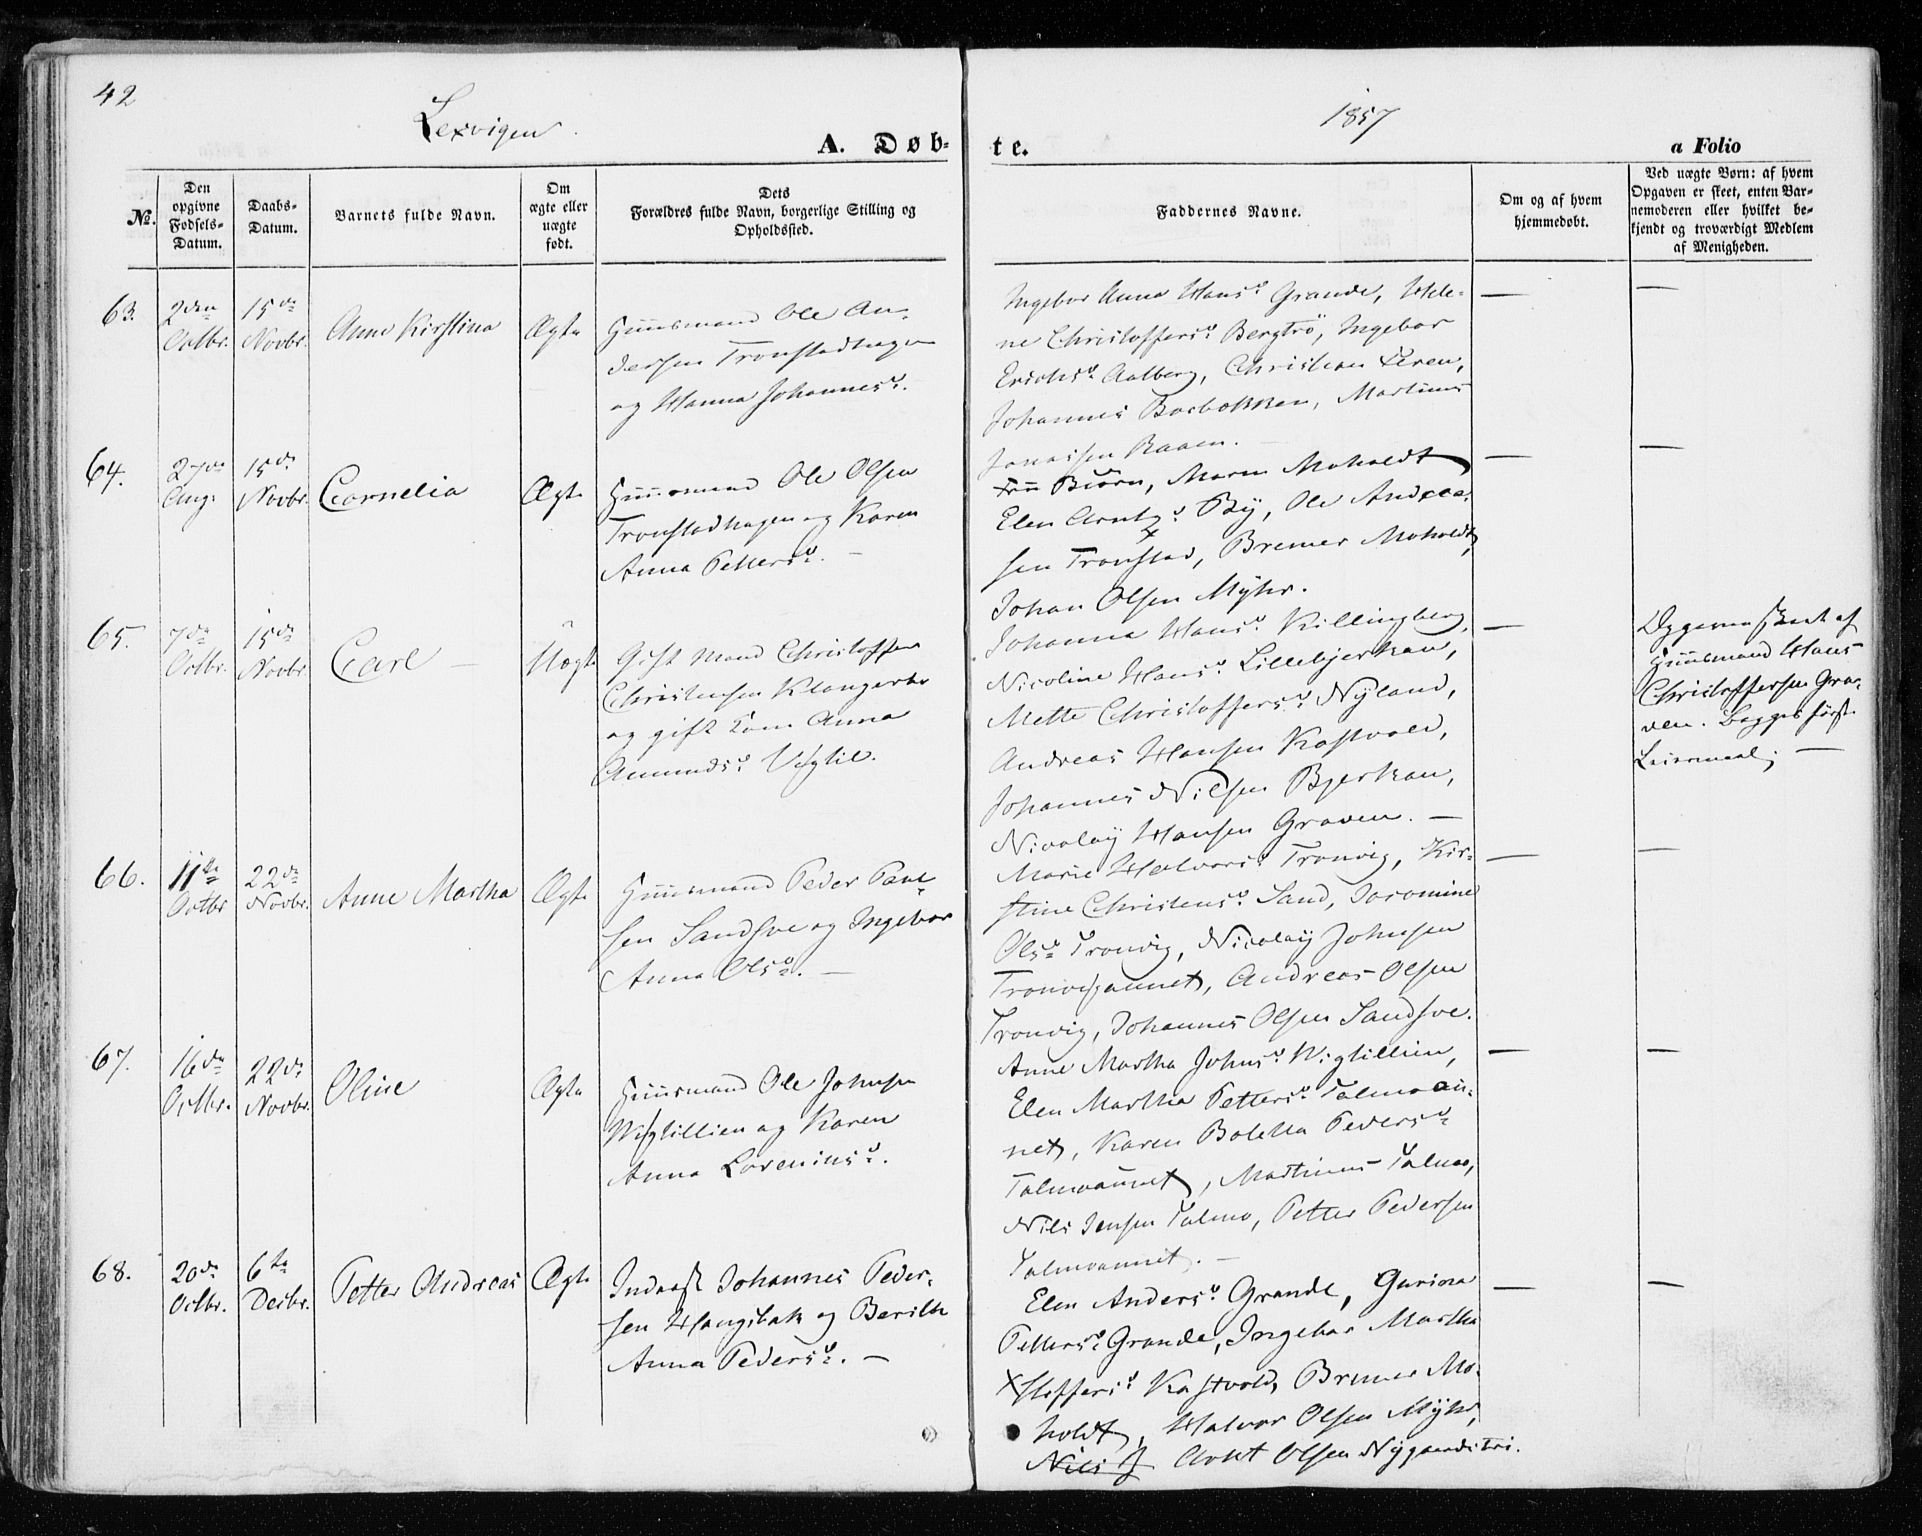 42
Lexvigen
1857
A. Døb-
te.
a Folio
No.
Den
opgivne
Fødsels-
Datum.
Daabs-
Datum.
Barnets fulde Navn.
Om
ægte eller
uægte
født.
Dets
Forældres fulde Navn, borgerlige Stilling og
Opholdssted.
Faddernes Navne.
Om og af hvem
hjemmedøbt.
Ved uægte Børn: af hvem
Opgaven er skeet, enten Bar-
nemoderen eller hvilket be-
kjendt og troværdigt Medlem
af Menigheden.
63.
2den
Octbr.
15de
Novbr.
Anne Kirstina
Ægte
Huusmand Ole An-
dersen Tronstadhagen
og Hanna Johannesd.
Ingebor Anna Hansd. Grande,
ne Christoffersd. Bergtrö, Ingebor
Erichsd. Aalberg, Christian Teren,
Johannes Borbakken, Martinus
Jonassen Raaen.
—
—
64.
27de
Aug.
15de
Novbr.
Cornelia
Ægte
Huusmand Ole Olsen
Tronstadhagen og Karen
Anna Pettersd. —
Fru Biörn, Maren Moholdt
Elen Arntzd. By, Ole Andrea-
sen Tronstad, Bremer Moholdt,
Johan Olsen Myhr.
—
—
65.
7de
Octbr.
15de
Novbr.
Carl —
Uægte
Gift Mand Christoffer
Christensen Klangerbo
og gift Kone Anna
Amundsd. Vigtil.
Johanna Hansd. Killingberg,
Nicoline Hansd. Lillebjerkan,
Mette Christoffersd. Nyland,
Andreas Hansen Kastvold,
Johannes Nilsen Bjerkan,
Nicolay Hansen Graven. —
—
Opgaven skeet af
Huusmand Hans
Christoffersen Gra-
ven. Begges første
Leiermaal. —
66.
11te
Octbr
22de
Novbr.
Anne Martha
Ægte
Huusmand Peder Paul-
sen Sandsve og Ingebor
Anna Olsd. —
Marie Halvorsd. Tronvig, Kir-
stine Christensd. Sand, Joromine
Olsd. Tronvig, Nicolay Johnsen
Tronvigaunet, Andreas Olsen
Tronvig, Johannes Olsen Sandsve.
—
—
67.
16de
Octbr.
22de
Novbr.
Oline
Ægte
Huusmand Ole Johnsen
Wigtillien og Karen
Anna Loreninsd.
Anne Martha Johnsd. Wigtillien,
Elen Martha Pettersd. Talmoau-
net, Karen Boletta Pedersd.
Talmoaunet, Martinus Talmo,
Nils Jensen Talmo, Petter Pedersen
Talmoaunet. —
—
—
68.
20de
Octbr.
6te
Decbr.
Petter Andreas
Ægte
Inderst Johannes Peder-
sen Haugsbak og Berith
Anna Pedersd. —
Elen Andersd. Grande, Gurina
Pettersd. Grande, Ingebor Martha
Xstoffersd. Kastvold, Bremer Mo-
holdt, Halvor Olsen Myhr,
Nils J Arnt Olsen Nygaardströ.
—
—